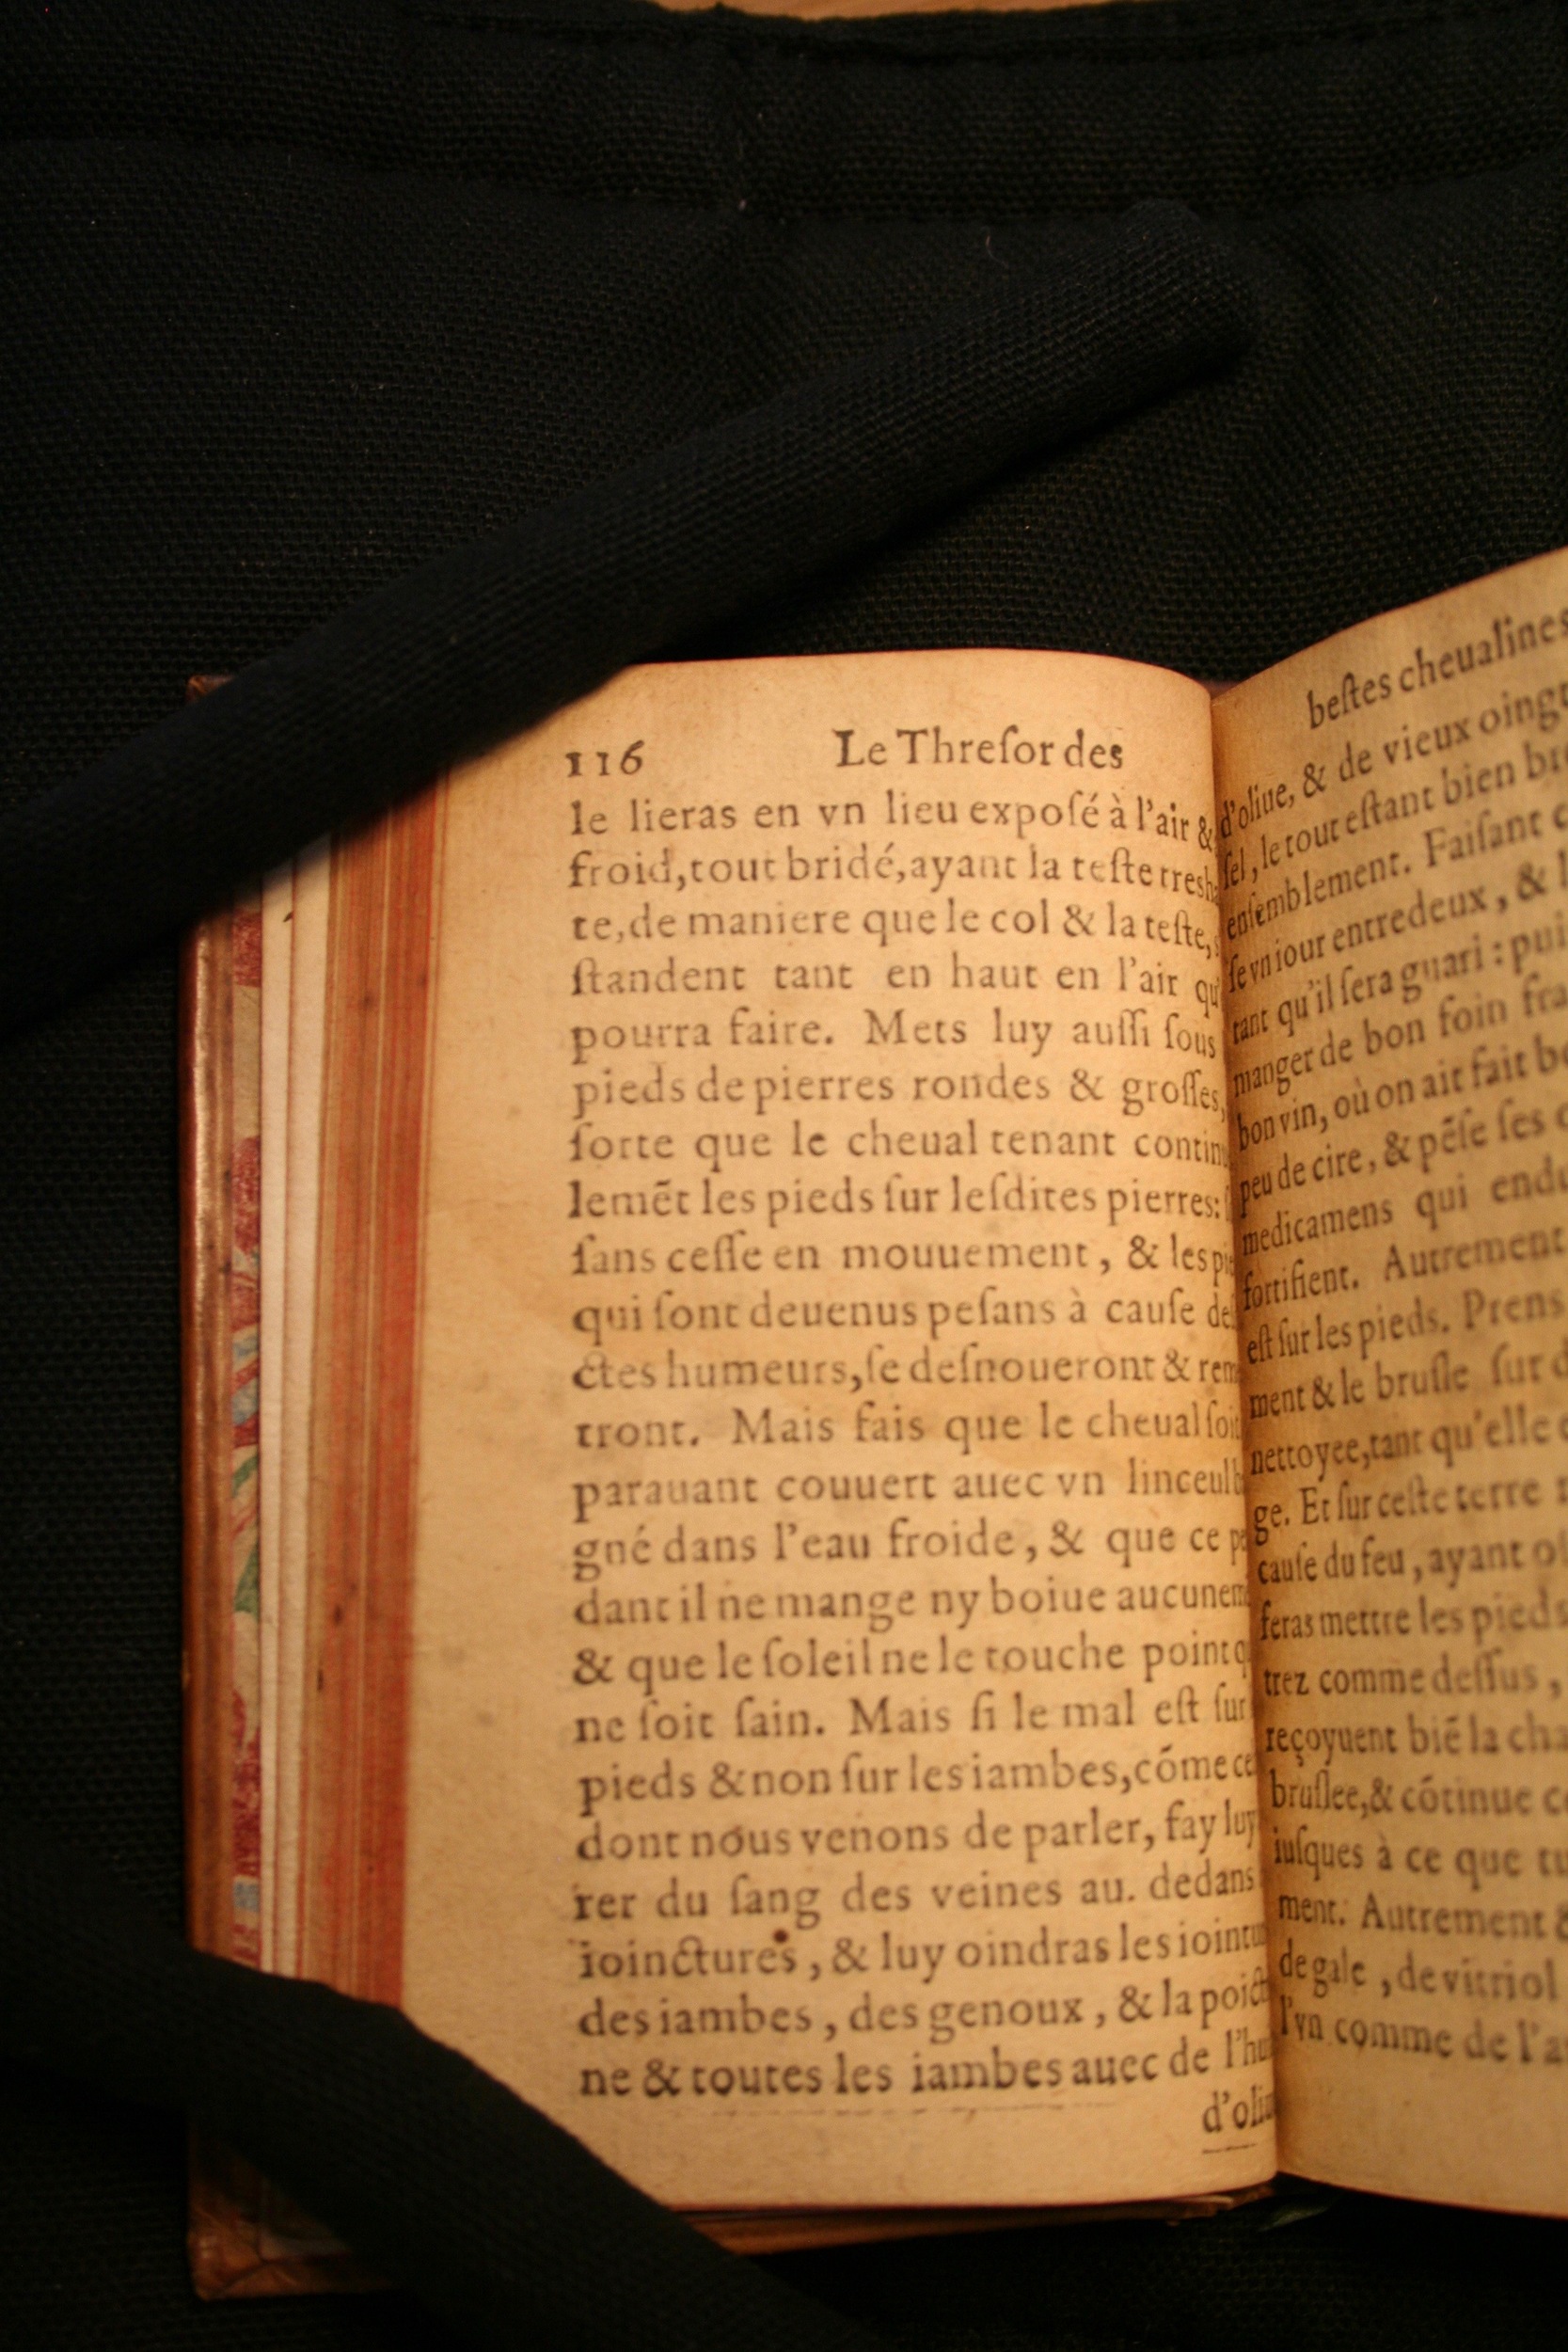 116 Le Threſor des
le lieras en vn lieu expoſé à l'air &
froid, tout bridé, ayant la teſte tresh
te, de maniere que le col & la teſte,
ſtandent tant en haut en l'air qu'
pourra faire. Mets luy auſſi ſous
pieds de pierres rondes & groſſes,
ſorte que le cheual tenant contin
lemẽt les pieds ſur leſdites pierres:
ſans ceſſe en mouuement, & les pi
qui ſont deuenus peſans à cauſe de
ctes humeurs, ſe deſnoueront & rem
tront. Mais fais que le cheual ſoit
parauant couuert auec vn linceul
gné dans l'eau froide, & que ce p
dant il ne mange ny boiue aucunem
& que le ſoleil ne le touche point q
ne ſoit ſain. Mais ſi le mal eſt ſur
pieds & non ſur les iambes, cóme ce
dont nous venons de parler, fay luy
rer du ſang des veines au. dedans
ioinctures, & luy oindras les iointu
des iambes, des genoux, & la poict
ne & toutes les iambes auec de l'hu
d'oliu
beſtes cheualines
d'oliue, & de vieux oing
ſel, le tout eſtant bien br
enſemblement. Faiſant
ſe vn iour entredeux, & l
tant qu'il ſera guari: pui
manger de bon foin fra
bon vin, où on ait fait bo
peu de cire, & pẽſe ſes
medicamens qui endu
fortifient. Autrement
eſt ſur les pieds. Prens
ment & le bruſle ſur
nettoyee, tant qu'elle
ge. Et ſur ceſte terre
cauſe du feu, ayant o
feras mettre les pieds
trez comme deſſus,
reçoyuent biẽ la cha
bruſlee, & cótinue c
iuſques à ce que tu
ment. Autrement &
de gale, de vitriol
l'vn comme de l'a